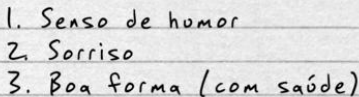 1. Senso de homor
2. Sorriso
3. Boa forma (com saúde)